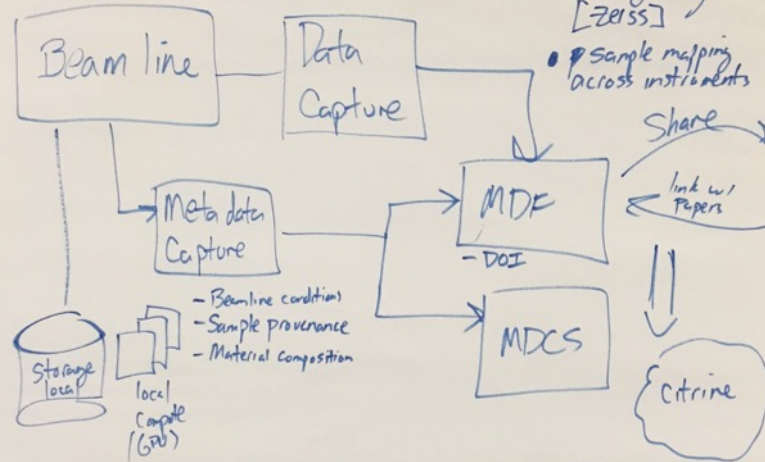 [Zeiss]
Beam line
Data
Capture
• sample mapping
across instruments
Share
Meta data
Capture
MDF
link w/
Papers
- DOI
- Beamline conditions
- Sample provenance
- Material composition
MDCS
Storage
local
local
Compute
(GPU)
Citrine